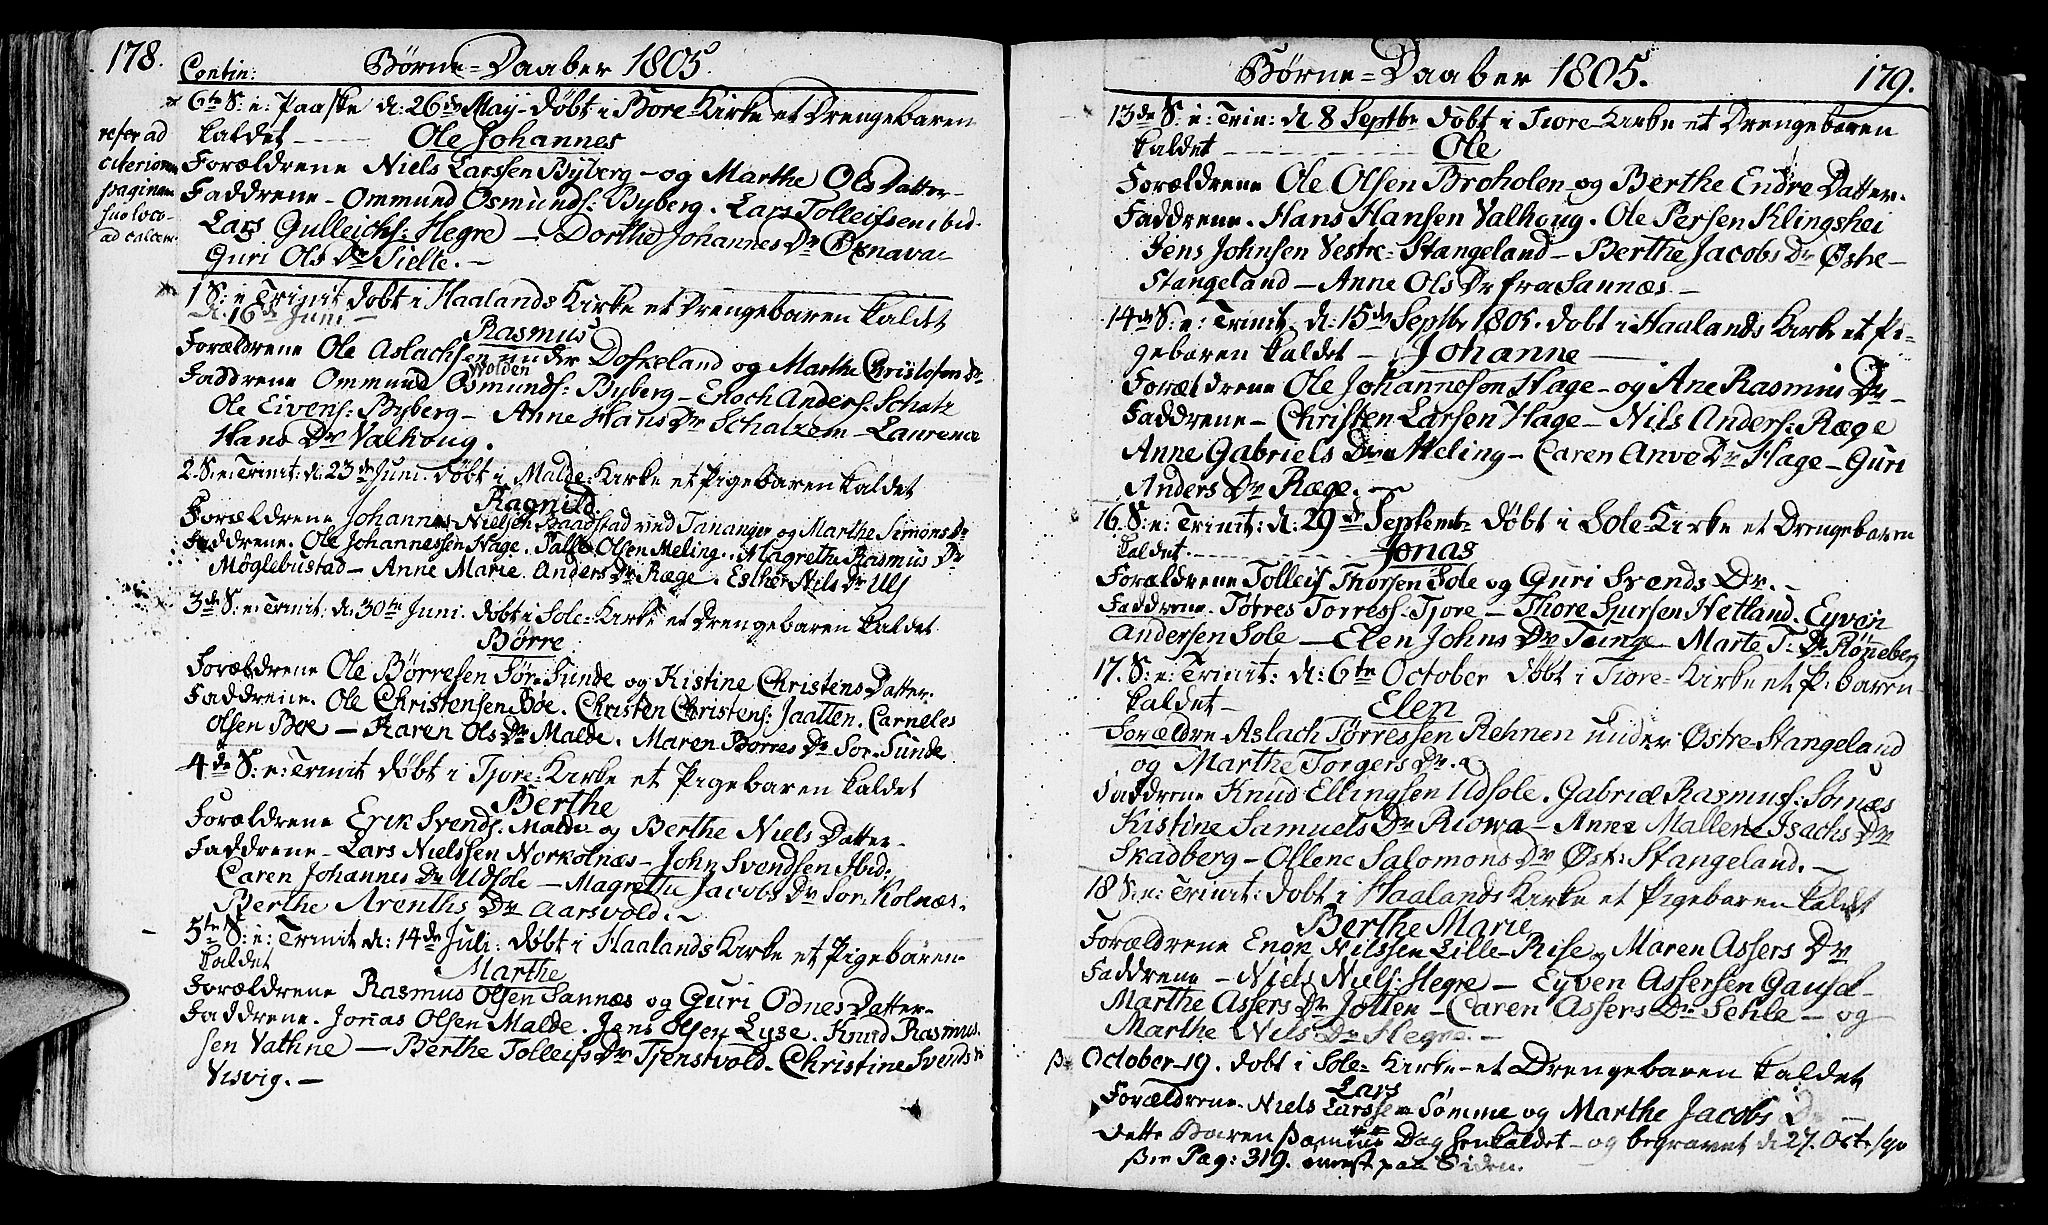 178.
Contin:
Børne=Daaber 1805.
6te S: e: Paaske d: 26de May døbt i Sore Kirke et Drengebaren
kaldet Ole Johannes
refer ad
citeriorem
paginam
suo loco
ad calcem
Forældrene Niels Larssen Byberg og Marthe Ols Datter
Faddrene Ommund Osmunds: Byberg. Lars Tolleifsen ibid.
Lars Gulleichs: Hegre Dorthe Johannes Dr Oxnavae
Guri Ols Dr Sielte.
1 S: e Trinit døbt i Haalands Kirke et Drengebaren kaldet
d. 16de Juni
Rasmus
Forældrene Ole Aslachsen under Dofkeland og Marthe Christofen Dr
Wolden
Faddrene Ommund Osmunds: Byberg Enoch Anders: Schatz
Ole Eivens: Byberg Anne Hans Dr Schatzem Laurence
Hans Dr Valhoug.
2. S: e: Trinit: d: 23de Juni døbt i Malde Kirke et Pigebaren kaldet
Ragnild
Forældrene Johannes Nielsen Baadstad ved Tananger og Marthe Simons Dr
Faddrene. Ole Johannessen Hage. Palle Olsen Meling. Magrethe Rasmus Dr
Møglebustad Anne Marie Anders Dr Ræge. Esther Nils Dr Ulf
3de S: e: Trinit: d: 30te Juni døbt i Sole Kirke et Drengebaren kaldet
Børre
Forældrene Ole Børresen Sør Sunde og Kistine Christens Datter.
Faddrene. Ole Christensen Bøe. Christen Christens: Jaatten. Carneles
Olsen Bøe Karen Ols Dr Malde. Maren Borres Dr Sor Sunde
4de S: e: Trinit døbt i Tjore Kirke et Pigebaren kaldet
Berthe
Forældrene Erik Svends. Malde og Berthe Niels Datter
Faddrene Lars Nielssen Norkolnæs John Svendsen Ibid:
Caren Johannes Dr Udsole Magrethe Jacobs Dr Sør Kolnæs.
Berthe Arenths Dr Aarsvold.
5te S: e: Trinit d: 14de Juli: døbt i Haalands Kirke et Pigebaren
kaldet
Marthe
Forældrene Rasmus Olsen Sannæs og Guri Odnes Datter
Faddrene. Jonas Olsen Malde. Jens Olsen Lyse. Knud Rasmus
sen Vathne Berthe Tolleifs Dr Tjenstvold. Christine Svends Dr
Visvig.
Børne=Daaber 1805.
179.
13de S: e: Trin: d 8 Septbr døbt i Tiore Kirke et Drengebaren
kaldet Ole
Forældrene Ole Olsen Broholen og Berthe Endre Datter.
Faddrene. Hans Hansen Valhoug. Ole Persen Klingshei
Jens Johnsen Vestre Stangeland Berthe Jacobs Dr Østre
Stangeland Anne Ols Dr fra Sannæs.
14de S: e: Trinit. d: 15de Septbr 1805. døbt i Haalands Kirke et Pi=
gebaren kaldet Johanne
Forældrene Ole Johannesøn Hage og Ane Rasmus Dr
Faddrene Christen Larsen Hage Nils Anders: Ræge
Anne Gabriels Dr Meling Caren Anve Dr Hage Guri
Anders Dr Ræge.
16. S: e: Trinit: d: 29de Septembr døbt i Sole Kirke et Drengebaren
kaldet Jonas
Forældrene Tolleif Thorsen Sole og Guri Svends Dr.
Faddrene. Tørres Torress: Tjore Thore Sjursen Hetland. Eyven
Andersen Sole Elen Johns Dr Tiinge Marte T: Dr Røneberg
17. S: e: Trinit: d: 6te October døbt i Tiore Kirke et P: baren
kaldet Elen
Forældre Aslach Tørressen Rehnen under Østre Stangeland
og Marthe Torgers Dr.
Faddrene Knud Ellingsen Udsole. Gabriel Rasmus: Sørnæs
Kistine Samuels Dr Riowa Anne Mallene Isachs Dr
Skadberg Ollene Salomons Dr Øst: Stangeland.
18 S: e: Trinit: døbt i Haalands Kirke et Pigebaren kaldet
Berthe Marie
Forældrene Enok Nilssen Lille Rise og Maren Assers Dr
Faddrene Niels Niels: Hegre Eyven Assersen Gausel
Marthe Assers Dr Jotten Caren Assers Dr Sehle og
Marthe Nils Dr Hegre.
October 19. døbt i Sole Kirke et Drengebaren kaldet
Lars
Forældrene Niels Larssen Sømme og Marthe Jacobs D
dette Baren Dag henkaldet og begravet d 27. Octr
Pag: 319. nederst paa Siden.